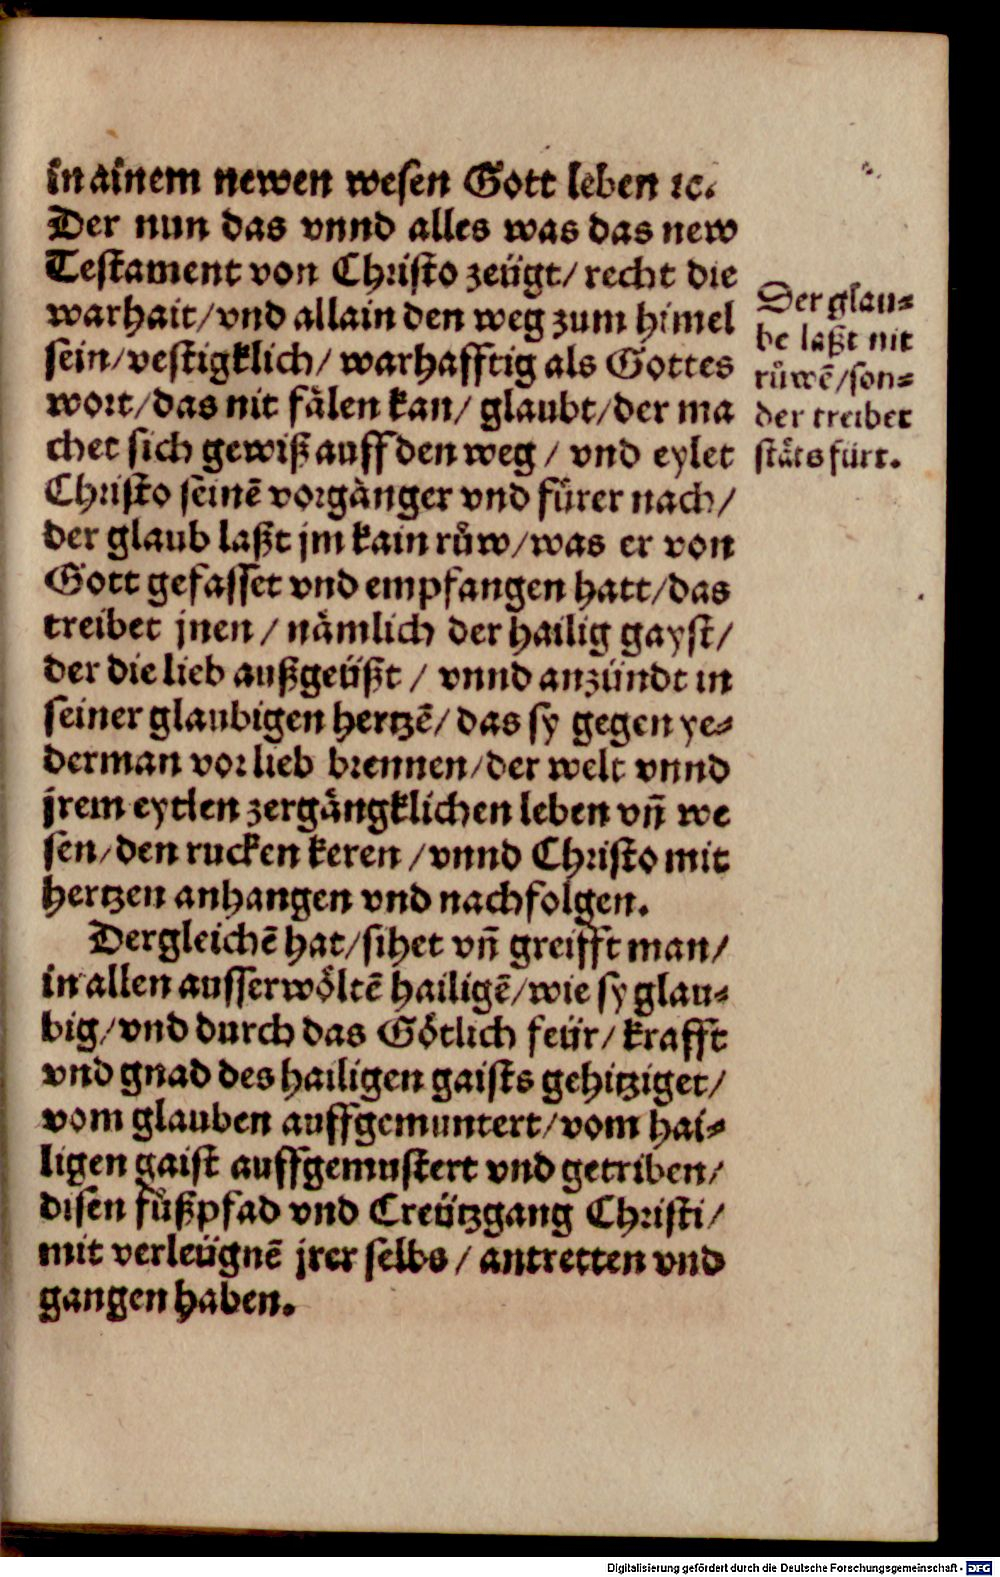 in ainem newen wesen Gott leben ꝛc.
Der nun das vnnd alles was das new
Testament von Christo zeügt/ recht die
warhait/ vnd allain den weg zum himel
sein/ vestigklich/ warhafftig als Gottes
wort/ das nit fälen kan/ glaubt/ der ma
chet sich gewiß auff den weg / vnd eylet
Christo seinē vorgänger vnd fürer nach/
der glaub laßt jm kain růw/ was er von
Gott gefasset vnd empfangen hatt/ das
treibet jnen / nämlich der hailig gayst/
der die lieb außgeüßt / vnnd anzündt in
seiner glaubigen hertzē/ das sy gegen ye⸗
derman vor lieb brennen/ der welt vnnd
jrem eytlen zergängklichen leben vn̄ we
sen/ den rucken keren / vnnd Christo mit
hertzen anhangen vnd nachfolgen.
Dergleichē hat/ sihet vn̄ greifft man/
in allen ausserwöltē hailigē/ wie sy glau⸗
big/ vnd durch das Götlich feür/ krafft
vnd gnad des hailigen gaists gehitziget/
vom glauben auffgemuntert/ vom hai⸗
ligen gaist auffgemustert vnd getriben/
disen fůßpfad vnd Creützgang Christi/
mit verleügnē jrer selbs / antretten vnd
gangen haben.
Der glau⸗
be laßt nit
růwē/ son⸗
der treibet
stäts fürt.
Digitalisierung gefördert durch die Deutsche Forschungsgemeinschaft - DFG